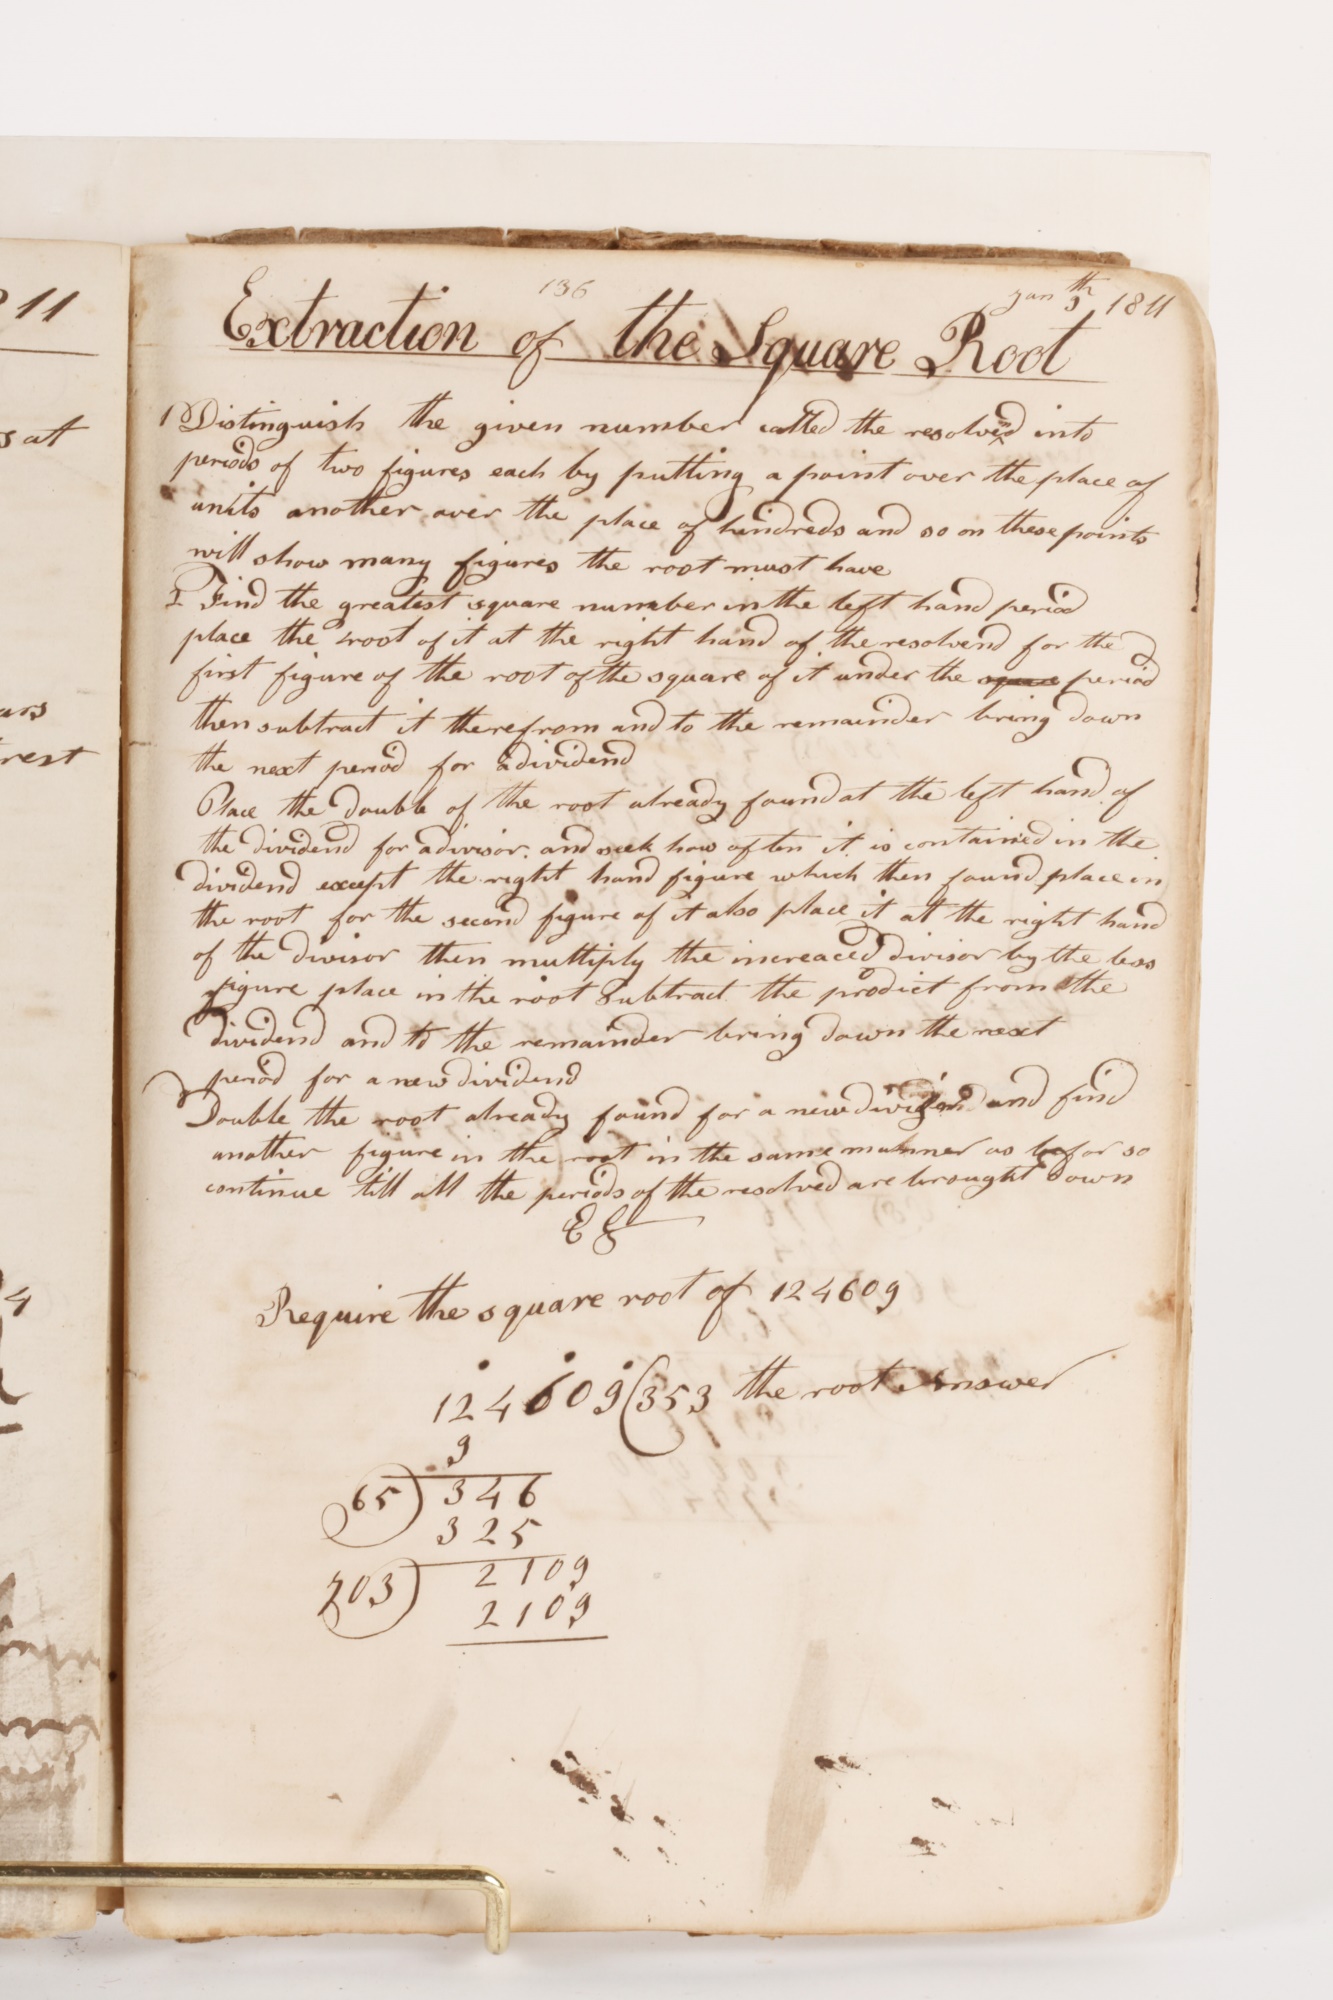 211
s at
ars
rest
4
136
Jan th 1811
Extraction of the Square Root
1 Distinguish the given number called the resolvend into
periods of two figures each by putting a point over the place of
units another over the place of hundreds and so on these points
will show many figures the root must have
2 Find the greatest square number in the left hand period
place the root of it at the right hand of the resolvend for the
first figure of the root of the square of it under the period
then subtract it therefrom and to the remainder bring down
the next period for a dividend
Place the double of the root already found at the left hand of
the dividend for a divisor and seek how often it is contained in the
dividend except the right hand figure which then found place in
the root for the second figure of it also place it at the right hand
of the divisor then multiply the increaced divisor by the less
figure place in the root subtract the prodict from the
dividend and to the remainder bring down the next
period for a new dividend
Double the root already found for a new and find
another figure in the root in the same manner as befor so
continue till all the periods of the resolved are brought down
E G
Require the square root of 124609
124609(353 the root Answer
9
65) 346
325
703) 2109
2109